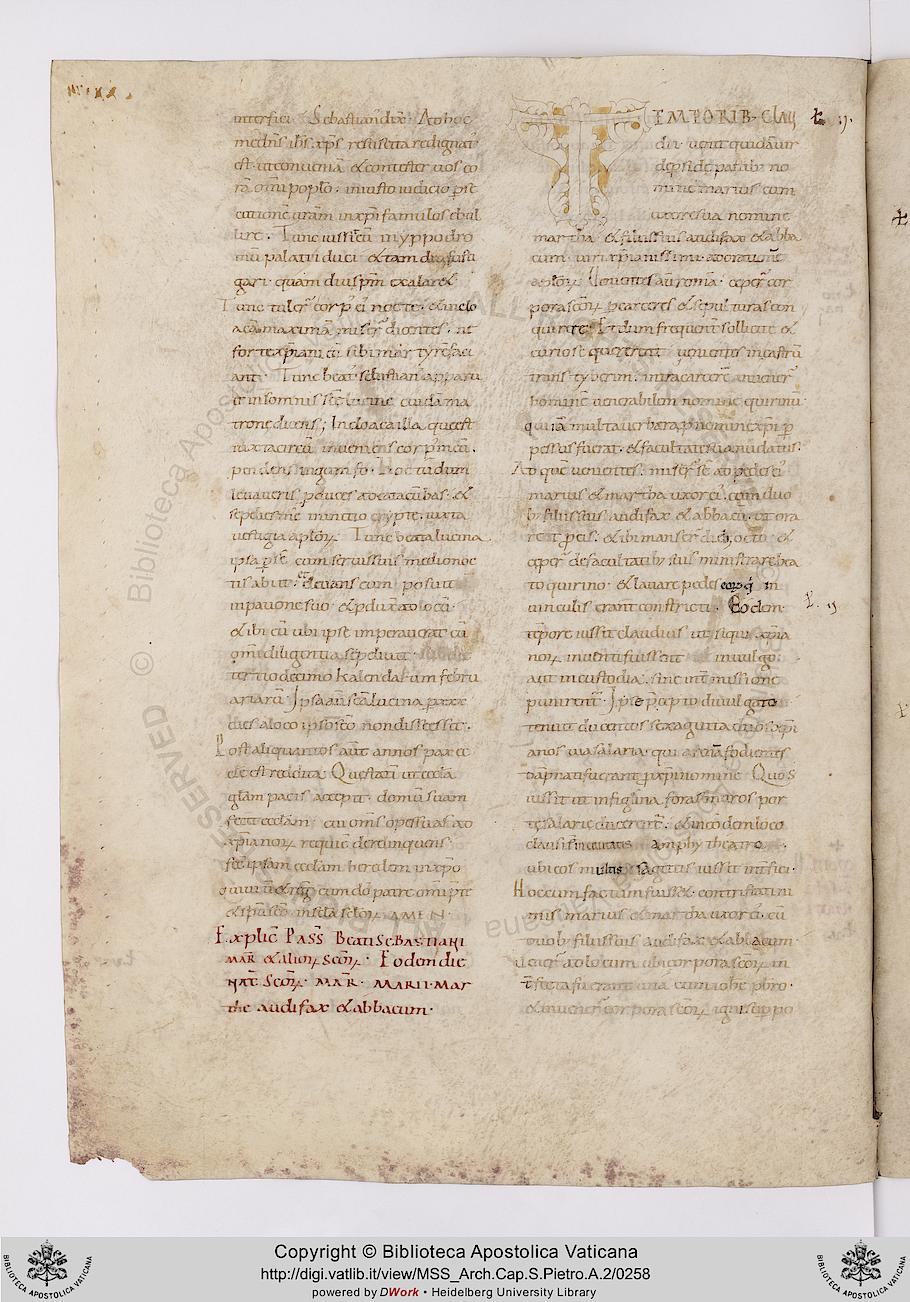 interfici Sebastianū dix̄. Ad hoc
me dn̄s ih̄s xp̄s resuscitare dignat᷒
est ut conveniā & contester vos co
rā om̄i pop̄lo iniusto iudicio p̄se
cutionē in xp̄i famulos ebul
lire. Tunc iussit eū in yppodro
mū palatii duci &tam diu fusti
gari quam diu sp̄m exalar&
Tunc tuler̄ corp᷒ ei᷒ nocte. & in clo
aca maxima miser̄ dicentes. ne
forte xp̄iani eū sibi martyrē faci
ant. Tunc beat᷒ sebastian᷒ apparu
it in somnis sc̄e lucine cuidā ma
tronę dicens; In cloaca illa que est
iuxta circū invenies corp᷒ meū.
pendens in gumfo. Hoc tu dum
levaveris p̄duces ad catacūbas. &
sepelies me in initio crypte. iuxta
vestigia ap̄loꝝ. Tunc beata lucina
ipsa p̄ se cum servis suis medio noc
tis abiit. & levans eum posuit
in pavone suo & p̄duxit ad locū
& ibi cū ubi ipse imperaverat cū
om̄i diligentia sepelivit
tertio decimo kalendarum febru
ariarū. Ipsa aut̄ sc̄a lucina p̄ xxx
dies a loco ipso sc̄o non discessit.
Post aliquantos aut̄ annos pax ec
clę est reddita. Que statī ut eccla
glam pacis accepit. domū suam
fecit ecclam. cui om̄s opes suas ad
xp̄ianoꝝ requiē derelinquens
sc̄e ipsam ecclam heredem in xp̄o
qui vivit & reg̅ cum dō patre om̄ip̄te
& sp̄u sc̄o in scla scloꝝ. AMEN.
Explic̄ Pass̄ Beati Sebastiani
mar̄ & alioꝝ scōꝝ. Eodem die
nat̄ scōꝝ. mar̄. marii. mar
the audifax & abbacum.
TEMPORIB᷒ Clau
dii venit quidā vir
de p̄side patib᷒ no
mine marius cum
uxore sua nomine
martha & filiis suis audifax & abba
cum viri xp̄ianissimi ad orationē
ap̄loꝝ. Venientes aut̄ romā. ceper̄ cor
pora scōꝝ p̄ carceres & sepulturas con
quirere. Et dum frequenter sollicite &
curiose quererent venientes in castrū
trans tyberim. intra carcerē invener̄
hominē venerabilem nomine quirinū
qui iā multa verbera p̄ nomine xp̄i p̄
pessus fuerat. & facultate sua nudatus.
Ad quē venientes. miser̄ se ad pedes ei᷒
marius & martha uxor ei᷒. cum duo
b᷒ filiis suis audifax & abbacū. ut ora
ret p̄ eis. & ibi manser̄ dieb᷒ octo. &
ceper̄ de facultatib᷒ suis ministrare bea
to quirino. & lavare pedes eoꝝ q̇ in
vinculis erant constricti. Eodem
tēpore iussit claudius ut siqui xp̄ia
noꝝ inventi fuissent in vulgo
aut in custodia. sine int̄missione
punirent̄. Ipse p̄cepto divulgato
tenuit ducentos sexaginta duos xp̄i
anos via salaria. qui arenā fodientes
dāpnati fuerant p̄ xp̄i nomine. Quos
iussit ut in figlina foras muros por
te salarie ducerent̄. & in eodem loco
clausi amphyteatro.
ubi eos militis sagittis iussit int̄fici.
Hoc cum factum fuiss&. contristati ni
mis marius & martha uxor ei᷒. cū
duob᷒ filiis suis audifax & abbacum.
vener̄ ad locum ubi corpora scōꝝ in
t̄fecta fuerant una cum iohe p̄bro.
& invener̄ corpora scōꝝ igni sup̄po
Copyright © Biblioteca Apostolica Vaticana
http://digi.vatlib.it/view/MSS_Arch.Cap.S.Pietro.A.2/0258
powered by DWork • Heidelberg University Library